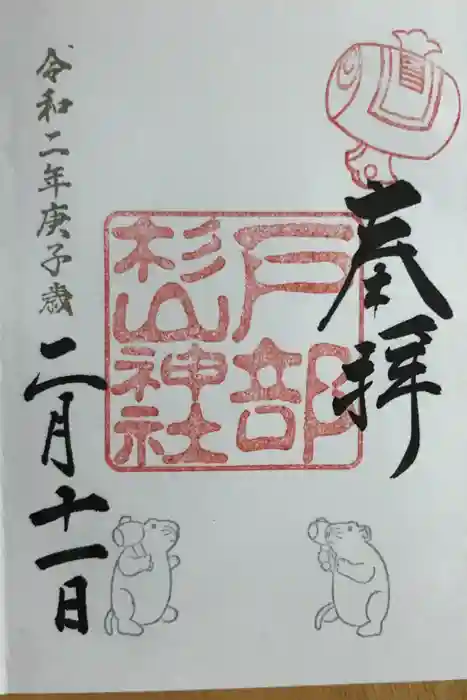 奉拝
戸部
杉山神社
令和二年庚子歳
二月十一日